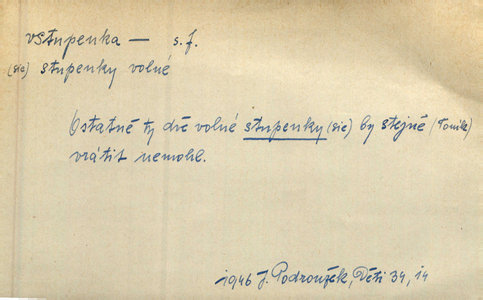 vstupenka — s. f.
(sic) stupenky volné
Ostatně ty dvě volné stupenky (sic) by stejně (Toník)
vrátit nemohl.
1946 J. Podroužek, Děti 34, 14